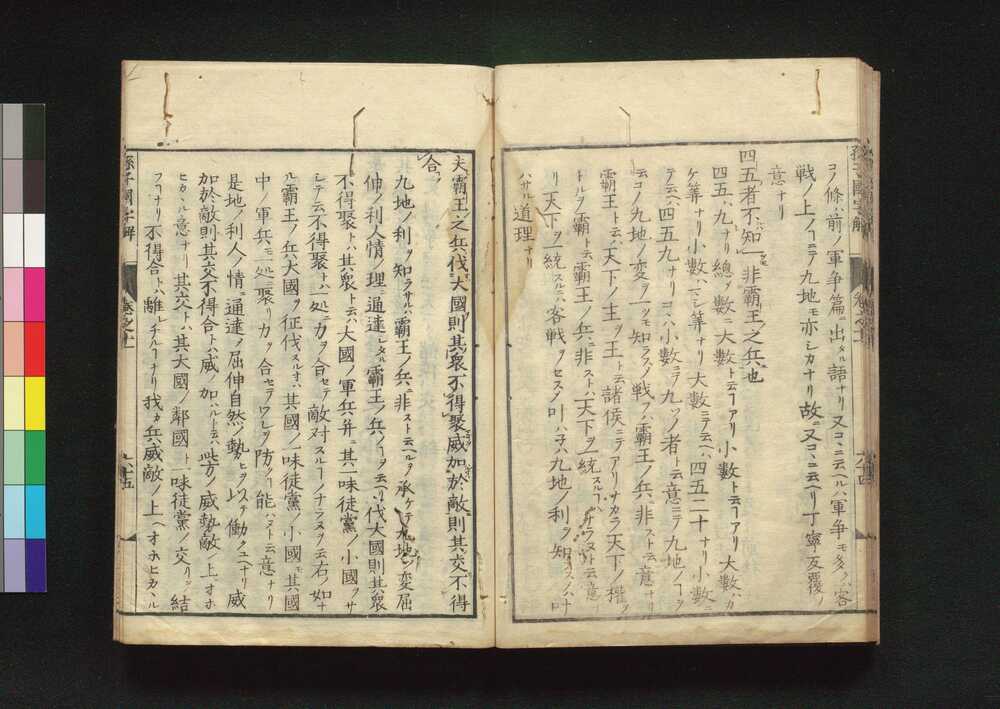 コノ條ハ前ノ軍争篇ニ出タル語ナリ又コヽニ云ヘルハ軍争モ多クハ客
戦ノ上ノコニテ九地モ亦シカナリ故ニ又コヽニ云ヘリ丁寧反覆ノ
意ナリ
四五者不知一非霸王之兵也
四五ハ九ナリ總シテ數ニ大數ト云コアリ小數ト云コアリ大數ハカ
ケ筭ナリ小數ハマシ筭ナリ大數ニテ云ヘハ四五二十ナリ小數ニ
テ云ヘハ四五九ナリコヽハ小數ニテ九ツノ者ト云意ニテ九地ノコヲ
云コノ九地ノ変ヲ一ツモ知ラスノ戦フハ霸王ノ兵ニ非スト云意ナリ
霸王ト云ハ天下ノ主ヲ王ト云諸侯ニテアリナカラ天下ノ權ヲ
トルヲ霸ト云霸王ノ兵ニ非ストハ天下ヲ一統スルコハナラヌト云意ナ
リ天下ヲ一統スルニハ客戦ヲセスノ叶ハヌコ九地ノ利ヲ知ラスノハナ
ハサル道理ナリ
夫霸王之兵伐大國則其衆不得聚威加於敵則其交不得
合
九地ノ利ヲ知ラサルハ霸王ノ兵ニ非スト云ヘルヲ承ケテ九地ノ変屈
伸ノ利人情ノ理ニ通達シタル霸王ノ兵ノコヲ云ヘリ伐大國則其衆
不得聚トハ其衆ト云ハ大國ノ軍兵并ニ其一味徒黨ノ小國ヲサ
シテ云不得聚トハ一処ニ力ヲ合セテ敵対スルコノナラヌヲ云右ノ如
ル霸王ノ兵大國ヲ征伐スル寸ハ其國ノ一味徒黨ノ小國モ其國
中ノ軍兵モ一処ニ聚リ力ヲ合セテワレヲ防クコ能ハスト云意ナリ
是地ノ利人ノ情ニ通達ノ屈伸自然ノ勢ヒヲ以テ働クユヘナリ威
加於敵則其交不得合トハ威ノ加ハルト云ハ此方ノ威勢敵ノ上ニオホ
ヒカヽル意ナリ其交トハ其大國ノ鄰國ト一味徒黨ノ交リヲ結
フコナリ不得合トハ離レチルコナリ我カ兵威敵ノ上ヘオホヒカヽル
孫子國字解
巻之十一
八十五